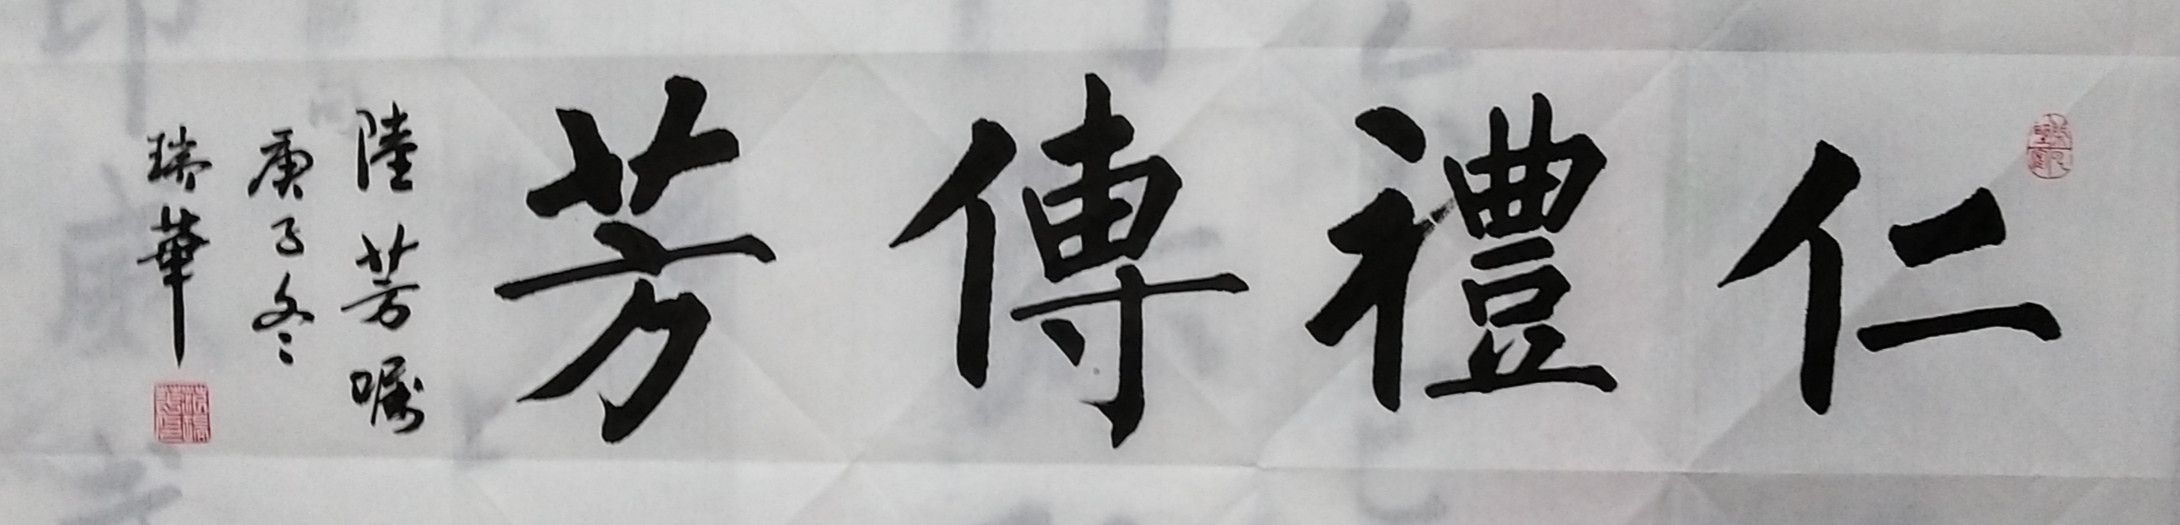 仁禮傳芳
陸芳囑
庚子冬
瑞華